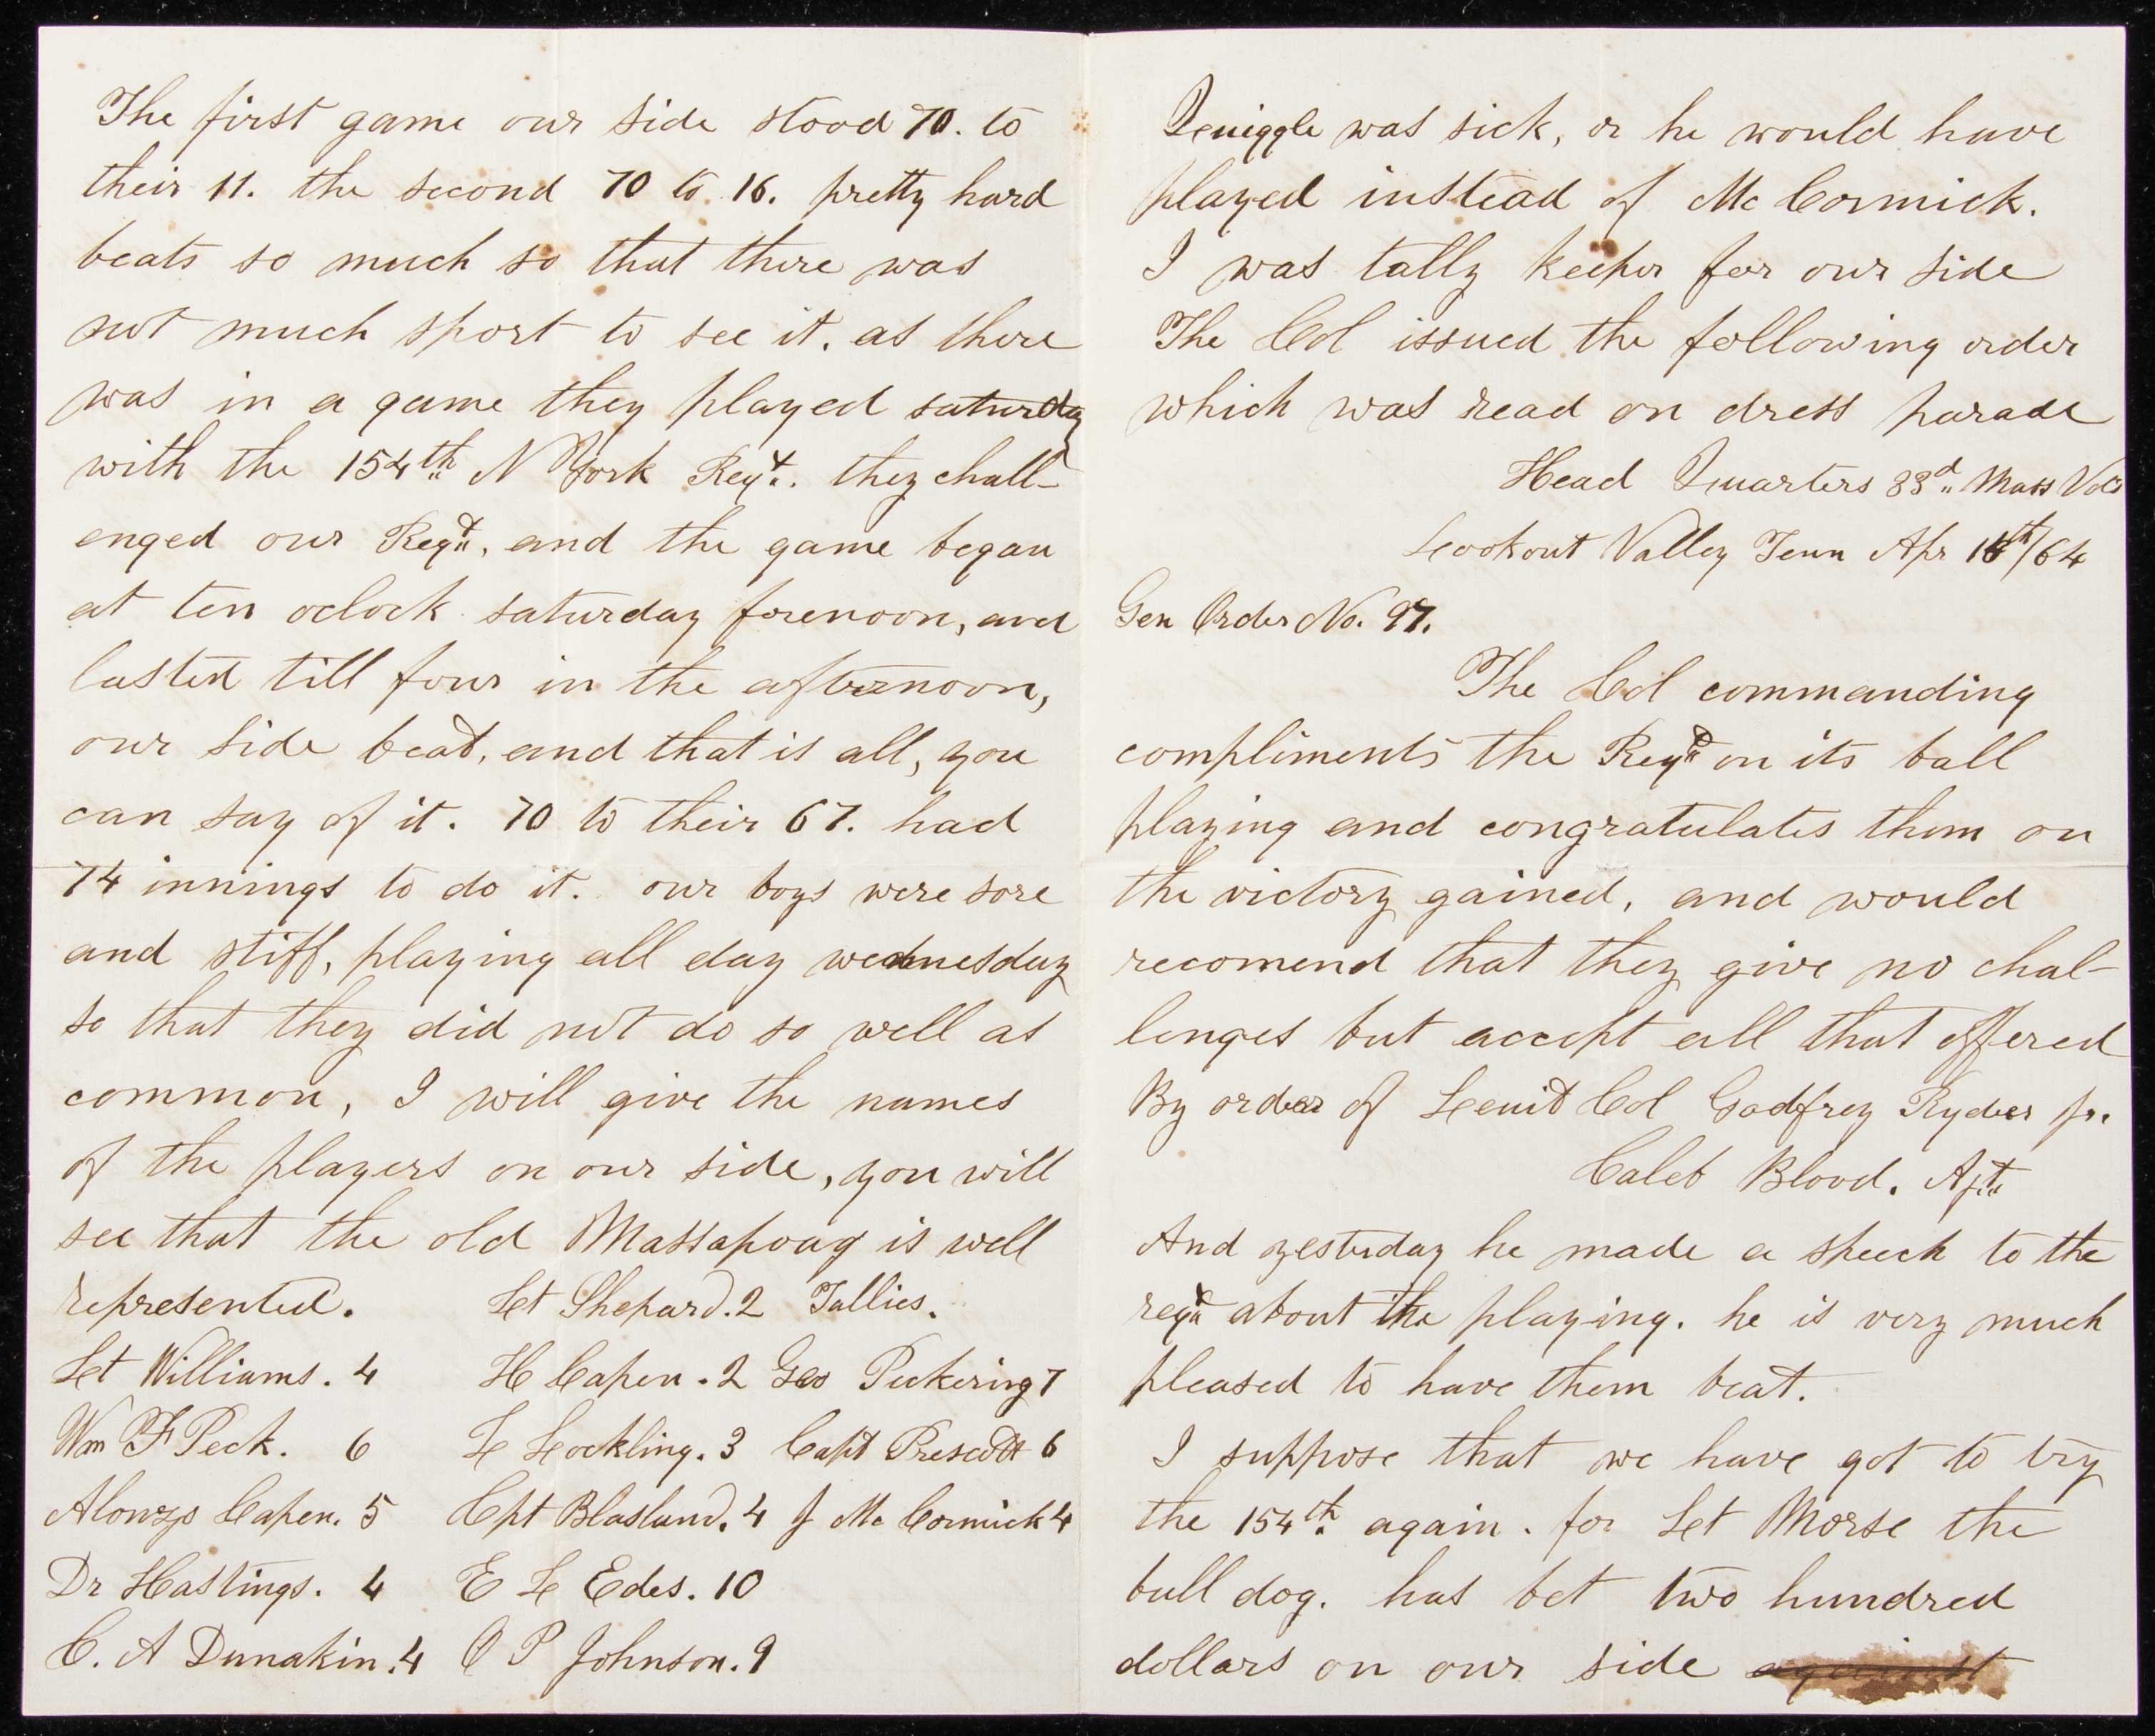 The first game our side stood 70. to
their 11. the second 70 to 16. pretty hard
beats so much so that there was
not much sport to see it. as there
was in a game they played saturday
with the 154th N York Regt. they chall-
enged our Regt, and the game began
at ten oclock saturday forenoon, and
lasted till four in the afternoon,
our side beat, and that is all, you
can say of it. 70 to their 67. had
74 innings to do it. our boys were sore
and stiff, playing all day wednesday
so that they did not do so well as
common, I will give the names
of the players on our side, you will
see that the old Massapoag is well
represented. Let Shepard. 2 Tallies.
Let Williams. 4 H Capen. 2 Geo Pickering 7
Wm F Peck. 6 L Lockling. 3 Capt Prescott 6
Alonzo Capen. 5 Cpt Blasland. 4 J Mc Cormick 4
Dr Hastings. 4 E L Edes. 10
C. A Dunakin. 4 O P Johnson. 9
Quiggle was sick, or he would have
played instead of Mc Cormick.
I was tally keeper for our side
The Col issued the following order
which was read on dress parade
Head Quarters 33d Mass Vols
Lookout Valley Tenn Apr /64
Gen Order No. 97.
The Col commanding
compliments the Regt on its ball
playing and congratulates them on
the victory gained, and would
recomend that they give no chal-
lenges but accept all that offered
By order of Leuit Col Godfrey Ryder Jr.
Caleb Blood. Ajt
And yesterday he made a speech to the
regt about the playing. he is very much
pleased to have them beat.
I suppose that we have got to try
the 154th again. for Let Morse the
bull dog. has bet two hundred
dollars on our side against